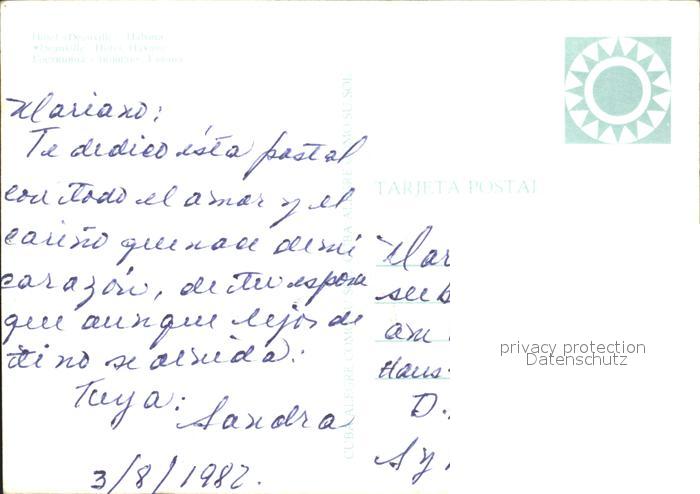 Hotel «Deauville». Habana
«Deauville» Hotel, Havana
Mariano:
Te dedico ésta postal
con todo el amor y el
cariño que nace de mi
corazón, de tu esposa
que aunque lejos de
ti no se olvida.
Tuya:
Sandra
3/8/1982.
CUBA ALEGRE COMO SU SOL
CUBA ALEGRE COMO SU SOL
TARJETA POSTAL
Mar
am
Haus
D.
privacy protection
Datenschutz